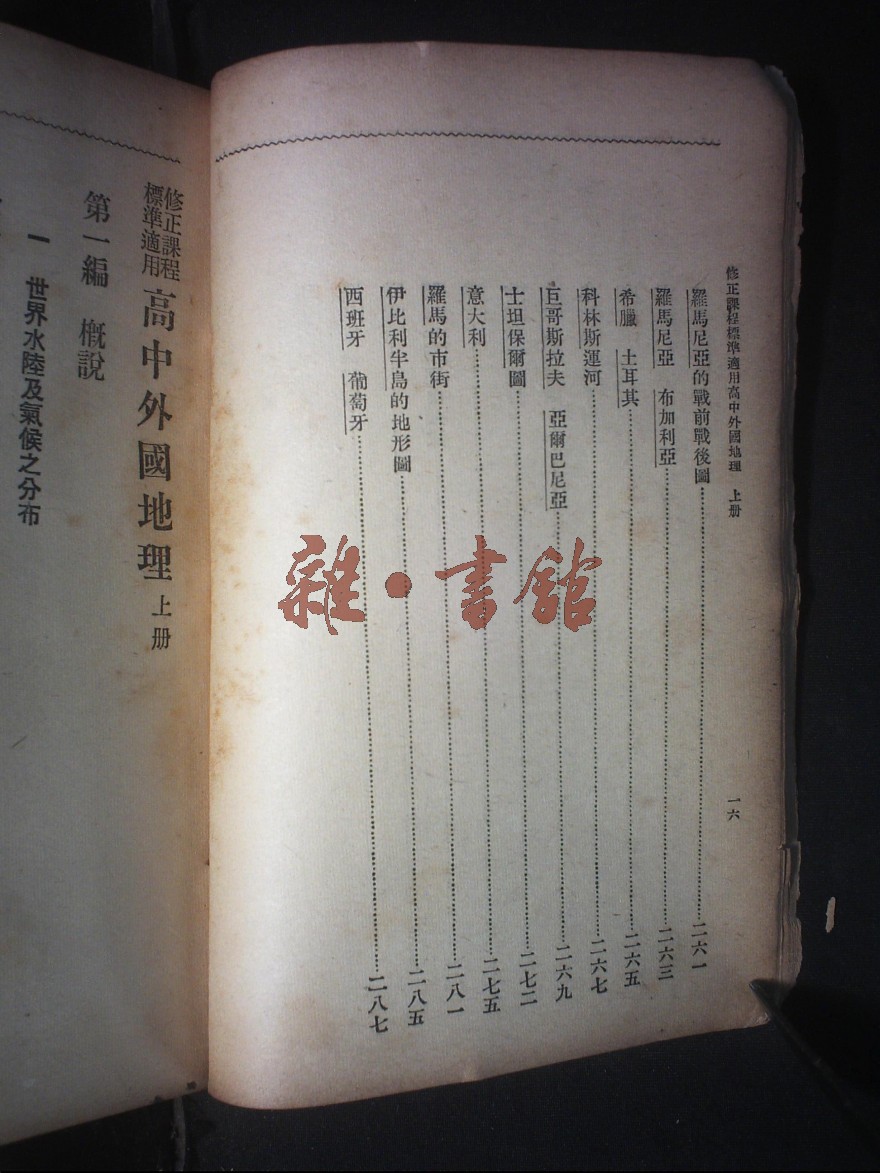 修正課程標準適用高中外國地理 上册
一六
羅馬尼亞的戰前戰後圖……二六一
羅馬尼亞 布加利亞……二六三
希臘 土耳其……二六五
科林斯運河……二六七
巨哥斯拉夫 亞爾巴尼亞……二六九
士坦保爾圖……二七二
意大利……二七五
羅馬的市街……二八一
伊比利半島的地形圖……二八五
西班牙 葡萄牙……二八七
修正課程
標準適用
高中外國地理 上册
第一編 概說
一 世界水陸及氣候之分布
雜·書館